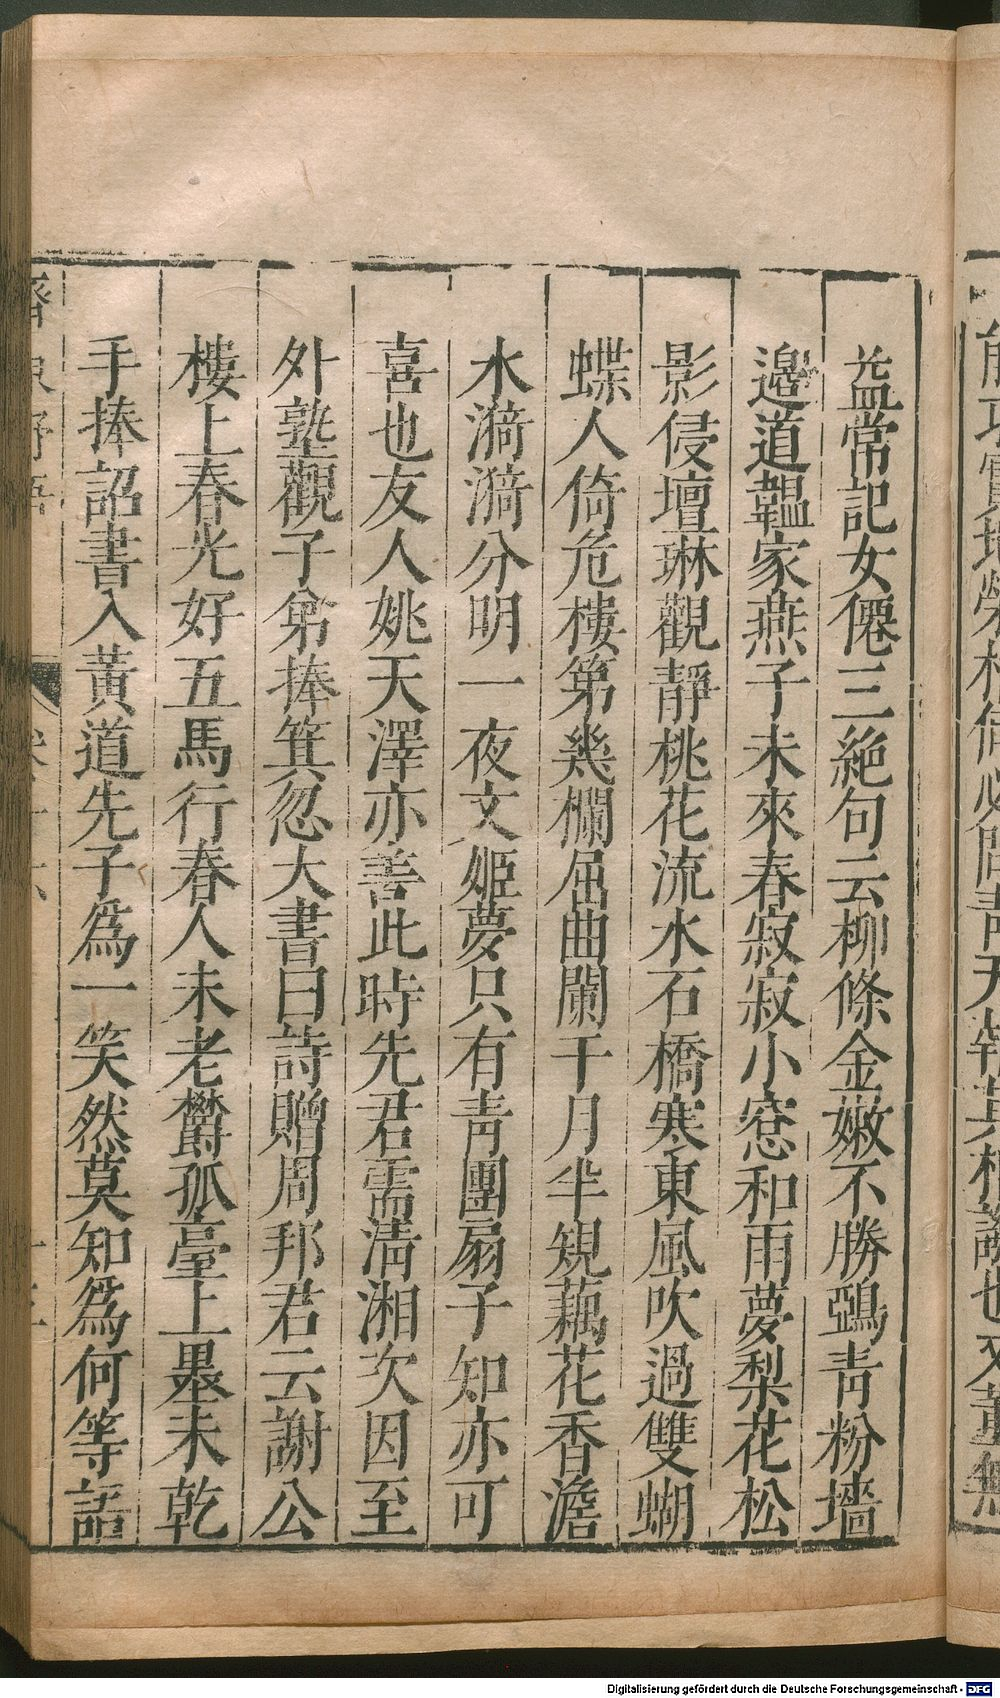 益常記女僊三絶句云柳條金嫩不勝鵶靑粉墻
邉道韞家燕子未來春寂寂小窓和雨夢梨花松
影侵壇琳觀靜桃花流水石橋寒東風吹過雙蝴
蝶人倚危樓第幾欄屈曲闌干月半規藕花香澹
水漪漪分明一夜文姬夢只有靑團扇子知亦可
喜也友人姚天澤亦善此時先君需淸湘次因至
外塾觀子弟捧箕忽大書曰詩贈周邦君云謝公
樓上春光好五馬行春人未老欝孤臺上墨未乾
手捧詔書入黃道先子爲一笑然莫知爲何等語
齊東野語
Digitalisierung gefördert durch die Deutsche Forschungsgemeinschaft - DFG